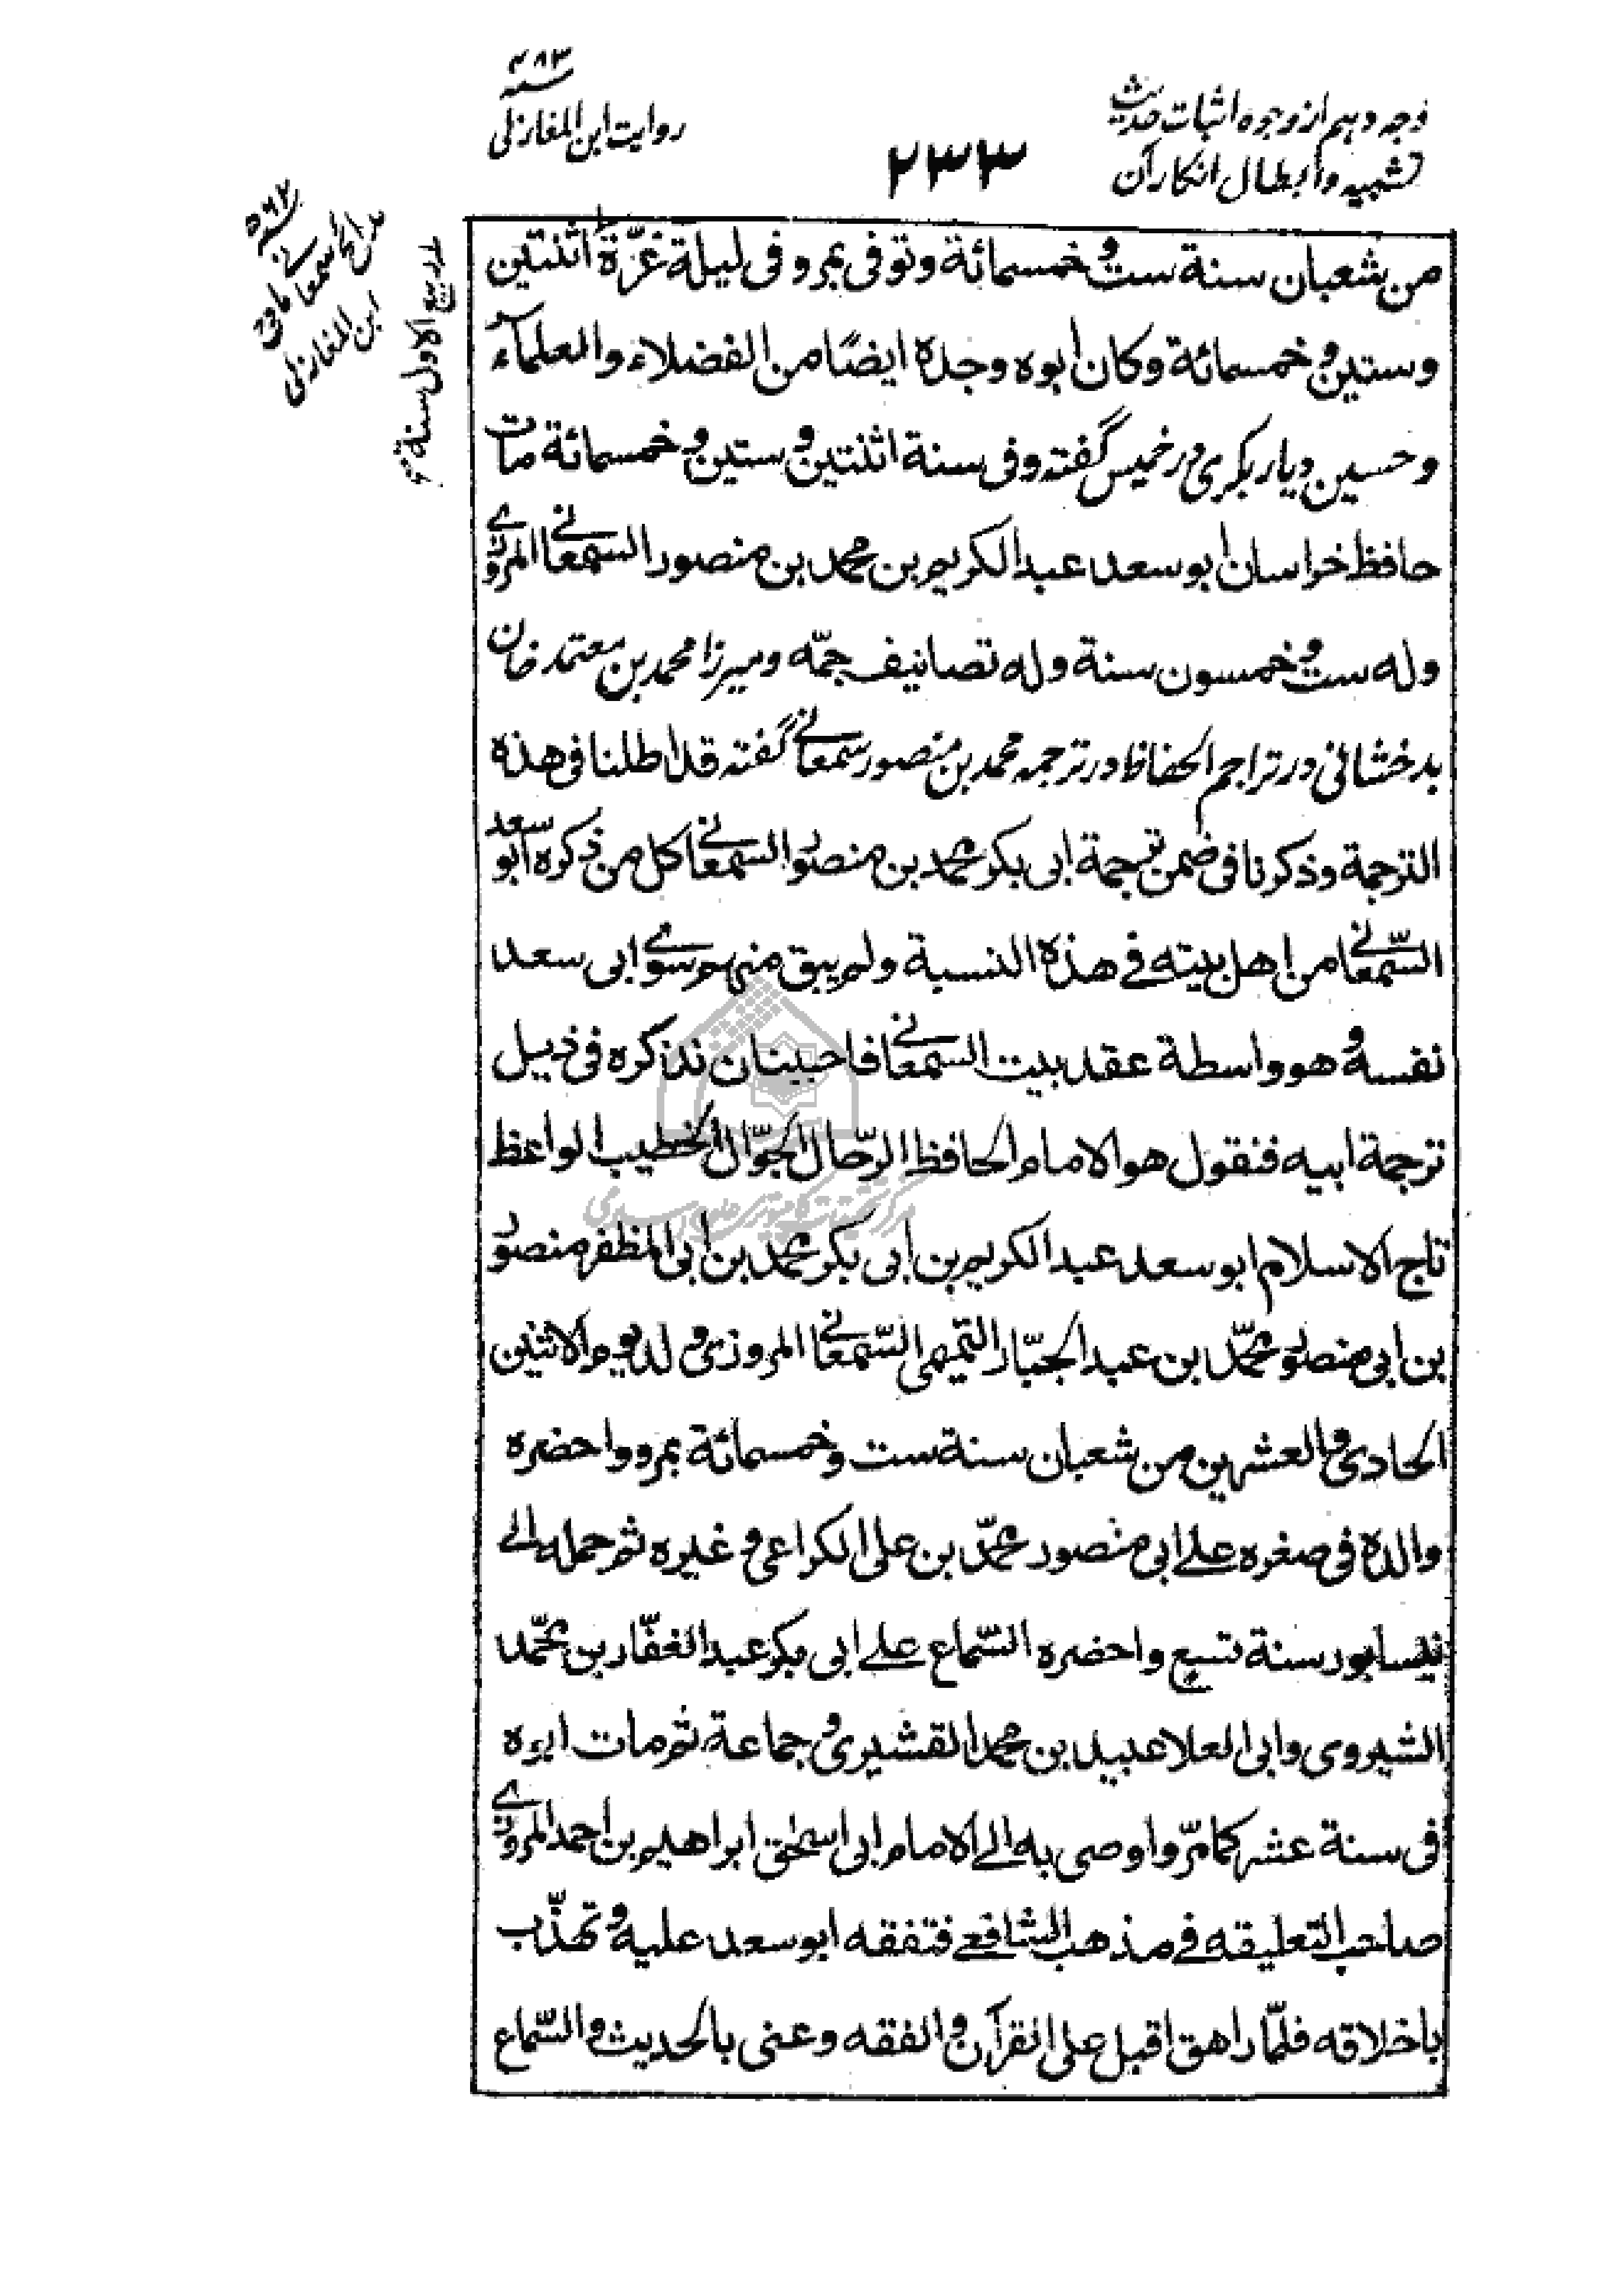 وجه دهم از وجوه اثبات حدیث
تشبیه و ابطال انکار آن
۲۳۳
سنه ۴۸۳
روایت ابن المغازلی
سنه ۵۶۲
مدح
سمعانی
ابن المغازلی
ربیع الاول سنة
من شعبان سنة ست و خمسمائة و توفی بمرو فی لیلة غرّة اثنتین
و ستین و خمسمائة و کان ابوه و جده ایضًا من الفضلاء و العلمآء
و حسین دیار بکری در خمیس گفته و فی سنة اثنتین و ستین و خمسمائة مات
حافظ خراسان ابو سعد عبد الکریم بن محمد بن منصور السمعانی المروزی
وله ست و خمسون سنة وله تصانیف جمّه و میرزا محمد بن معتمد خان
بدخشانی در تراجم الحفاظ در ترجمه محمد بن منصور سمعانی گفته قد اطلنا فی هذه
الترجمة و ذکرنا فی ضمن ترجمة ابی بکر محمد بن منصور السمعانی کل من ذکره ابو سعد
السّمعانی من اهل بیته فی هذه النسبة ولم یبق منهم سوی ابی سعد
نفسه و هو واسطة عقد بیت السمعانی فاحببنا ان نذکره فی ذیل
ترجمة ابیه فنقول هو الامام الحافظ الرّحال الجوّال الخطیب الواعظ
تاج الاسلام ابو سعد عبد الکریم بن ابی بکر محمد بن ابی المظفر منصور
بن ابی منصور محمّد بن عبد الجبّار التمیمی السّمعانی المروزی ولد یوم الاثنین
الحادی و العشرین من شعبان سنة ست و خمسمائة بمرو و احضره
والده فی صغره علی ابی منصور محمّد بن علی الکراعی و غیره ثم حمله الی
نیسابور سنة تسع و احضره السّماع علی ابی بکر عبد الغفّار بن محمّد
الشیروی و ابی العلا عبید بن محمد القشیری و جماعة ثم مات ابوه
فی سنة عشر کما مرّ و اوصی به الی الامام ابی اسحٰق ابراهیم بن احمد المروزی
صاحب التعلیقه فی مذهب الشافعی فتفقه ابو سعد علیه و تهذّب
باخلاقه فلمّا راهق اقبل علی القرآن و الفقه و عنی بالحدیث و السّماع